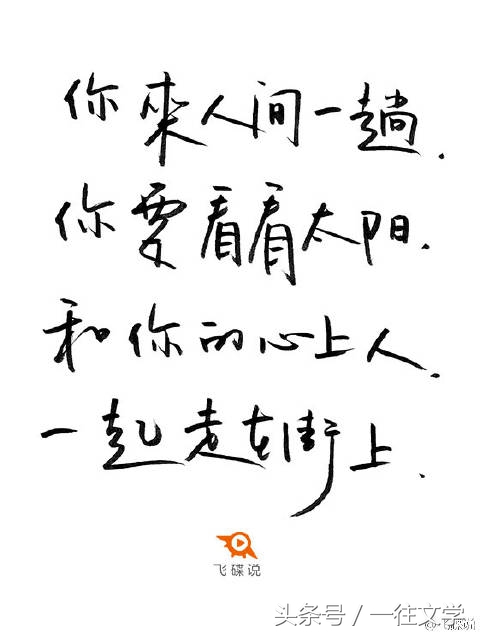 你來人间一趟.
你要看看太阳.
和你的心上人.
一起走在街上.
飞碟说
头条号 / 一往文学